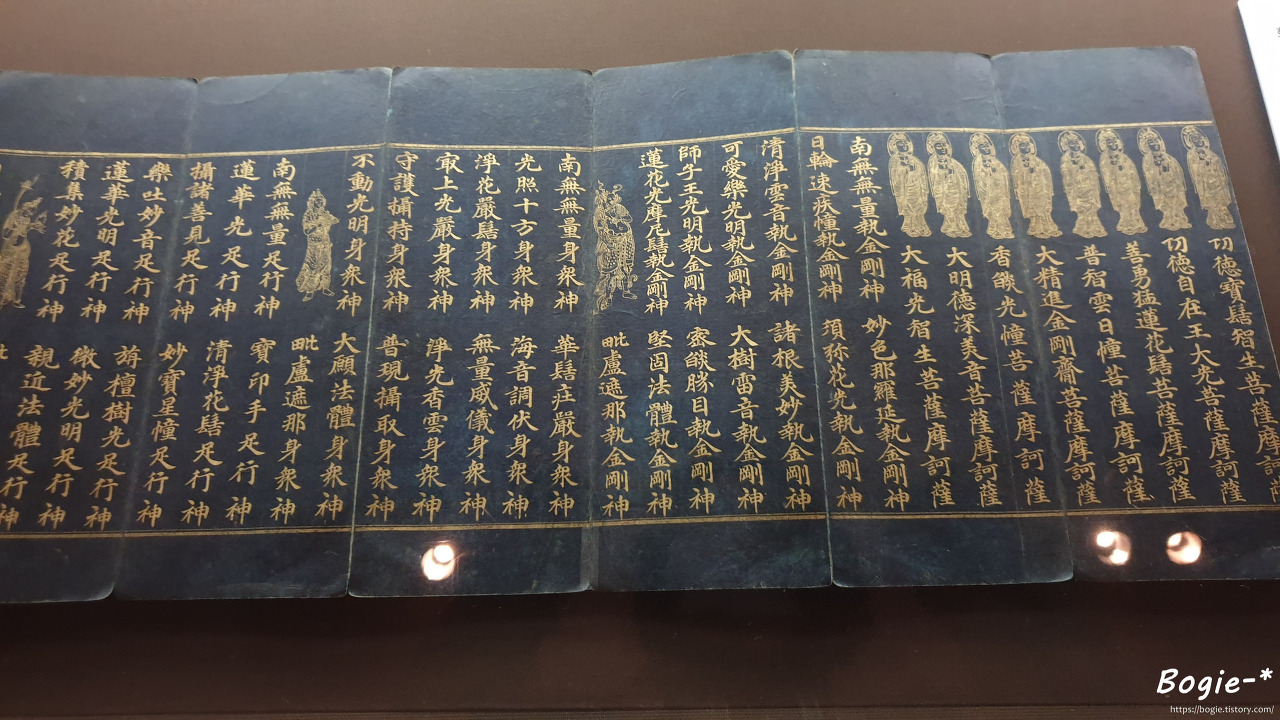 功德寶髻智生菩薩摩訶薩
功德自在王大光菩薩摩訶薩
善勇猛蓮花髻菩薩摩訶薩
普智雲日幢菩薩摩訶薩
大精進金剛齋菩薩摩訶薩
香燄光幢菩薩摩訶薩
大明德深美音菩薩摩訶薩
大福光智生菩薩摩訶薩
南無無量執金剛神 妙色那羅延執金剛神
日輪速疾幢執金剛神 須弥花光執金剛神
清淨雲音執金剛神 諸根美妙執金剛神
可愛樂光明執金剛神 大樹雷音執金剛神
師子王光明執金剛神 密燄勝目執金剛神
蓮花光摩尼髻執金剛神 堅固法體執金剛神
毗盧遮那執金剛神
南無無量身衆神 華髻庄嚴身衆神
光照十方身衆神 海音調伏身衆神
淨花嚴髻身衆神 無量威儀身衆神
㝡上光嚴身衆神 淨光香雲身衆神
守護攝持身衆神 普現攝取身衆神
不動光明身衆神 大願法體身衆神
毗盧遮那身衆神
南無無量足行神 寶印手足行神
蓮華光足行神 清淨花髻足行神
攝諸善見足行神 妙寶星幢足行神
樂吐妙音足行神 旃檀樹光足行神
蓮華光明足行神 微妙光明足行神
積集妙花足行神 親近法體足行神
Bogie-*
https://bogie.tistory.com/